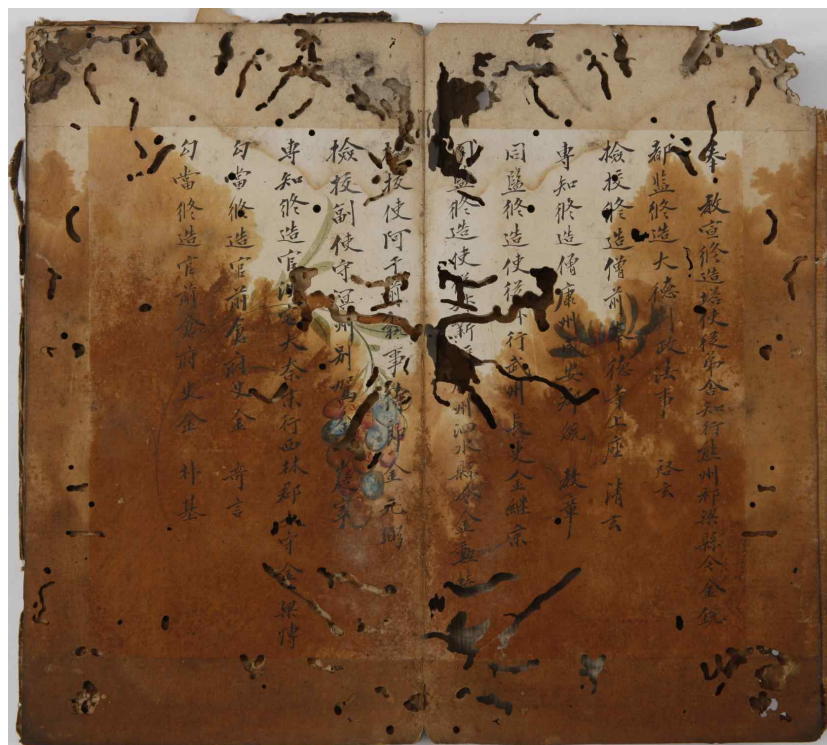 奉 教宣修造塔使從弟舍知行熊州祁梁縣令金銳
都監修造大德判政法事 啓玄
檢挍修造僧前奉德寺上座 清玄
專知修造僧康州咸安郡統 敎章
同監修造使從 行武州長史金繼宗
同監修造使從 新 州泗水縣令金勳榮
檢挍使阿干前 事侍郎金元弼
檢挍副使守溟州別駕金嶷寧
專知修造官洗宅大奈末行西林郡太守金梁博
勾當修造官前倉府史金 奇言
勾當修造官前倉府史金 朴基